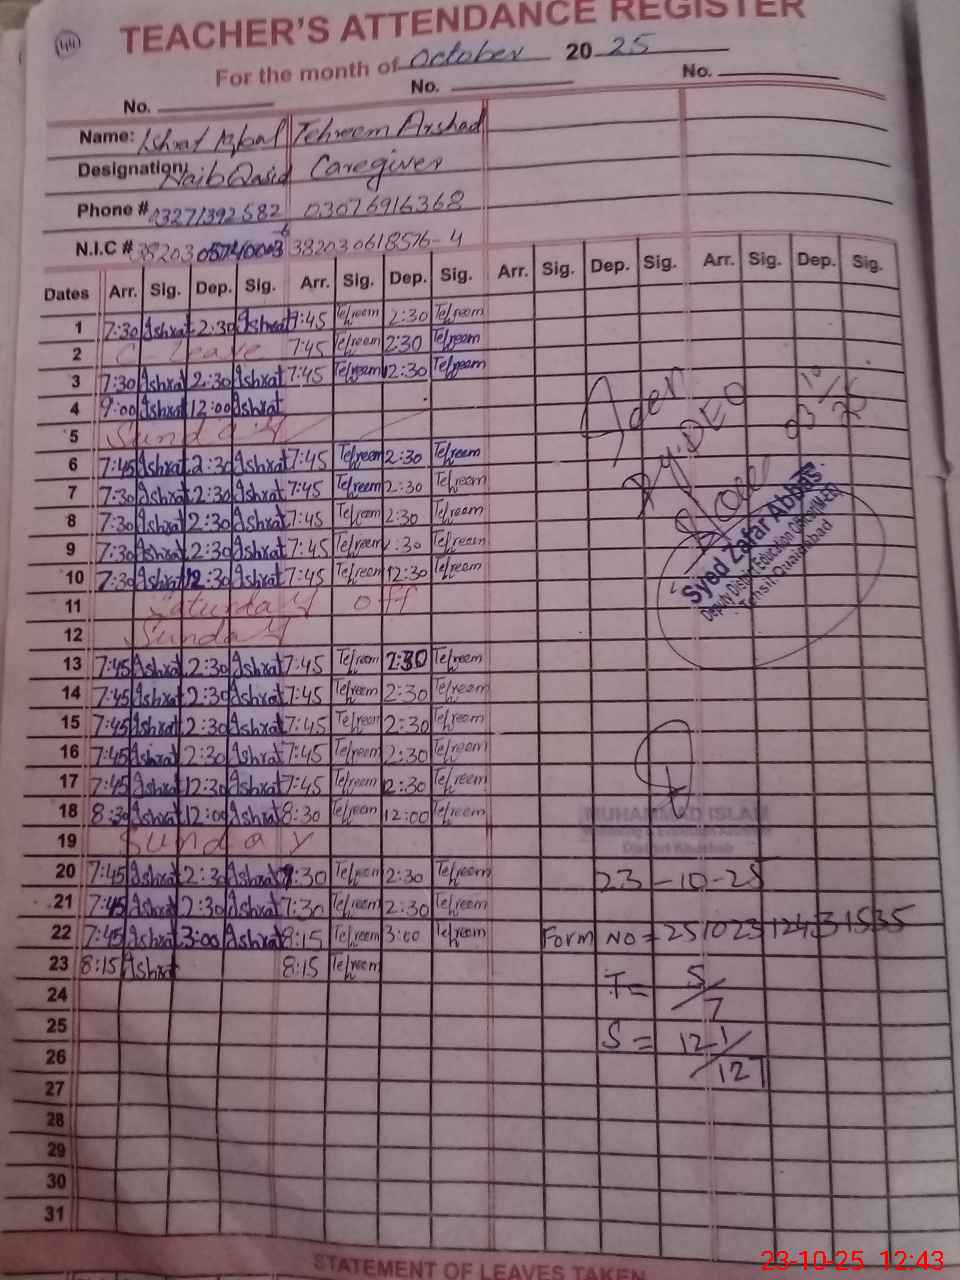 44
TEACHER'S ATTENDANCE REGISTER
For the month of October 2025
No. No. No.
Name: Ishrat Iqbal Tehreem Arshad
Designation: Naib Qasid Caregiver
Phone # 03271392582 03076916368
N.I.C # 38203 0618576-4
Dates Arr. Sig. Dep. Sig. Arr. Sig. Dep. Sig. Arr. Sig. Dep. Sig. Arr. Sig. Dep. Sig.
1 7:30 Ishrat 2:30 Ishrat 7:45 Tehreem 2:30 Tehreem
2 C-Leave 7:45 Tehreem 2:30 Tehreem
3 7:30 Ishrat 2:30 Ishrat 7:45 Tehreem 12:30 Tehreem
4 9:00 Ishrat 12:00 Ishrat
5 Sunday
6 7:45 Ishrat 2:30 Ishrat 7:45 Tehreem 2:30 Tehreem
7 7:30 Ishrat 2:30 Ishrat 7:45 Tehreem 2:30 Tehreem
8 7:30 Ishrat 2:30 Ishrat 7:45 Tehreem 2:30 Tehreem
9 7:30 Ishrat 2:30 Ishrat 7:45 Tehreem 2:30 Tehreem
10 7:30 Ishrat 12:30 Ishrat 7:45 Tehreem 12:30 Tehreem
11 Saturday off
12 Sunday
13 7:45 Ishrat 2:30 Ishrat 7:45 Tehreem 2:30 Tehreem
14 7:45 Ishrat 2:30 Ishrat 7:45 Tehreem 2:30 Tehreem
15 7:45 Ishrat 2:30 Ishrat 7:45 Tehreem 2:30 Tehreem
16 7:45 Ishrat 2:30 Ishrat 7:45 Tehreem 2:30 Tehreem
17 7:45 Ishrat 12:30 Ishrat 7:45 Tehreem 12:30 Tehreem
18 8:30 Ishrat 12:00 Ishrat 8:30 Tehreem 12:00 Tehreem
19 Sunday
20 7:45 Ishrat 2:30 Ishrat 7:30 Tehreem 2:30 Tehreem
21 7:45 Ishrat 2:30 Ishrat 7:30 Tehreem 2:30 Tehreem
22 7:45 Ishrat 3:00 Ishrat 8:15 Tehreem 3:00 Tehreem
23 8:15 Ishrat 8:15 Tehreem
24
25
26
27
28
29
30
31
Dy. DEO
03/10/25
Syed Zafar Abbas
Deputy District Education Officer (M-EE)
Tehsil Quaidabad
MUHAMMAD ISLAM
Monitoring & Evaluation Assistant
District Khushab
23-10-25
Form No = 25102312431535
T = 5/7
S = 121/127
STATEMENT OF LEAVES TAKEN
23-10-25 12:43